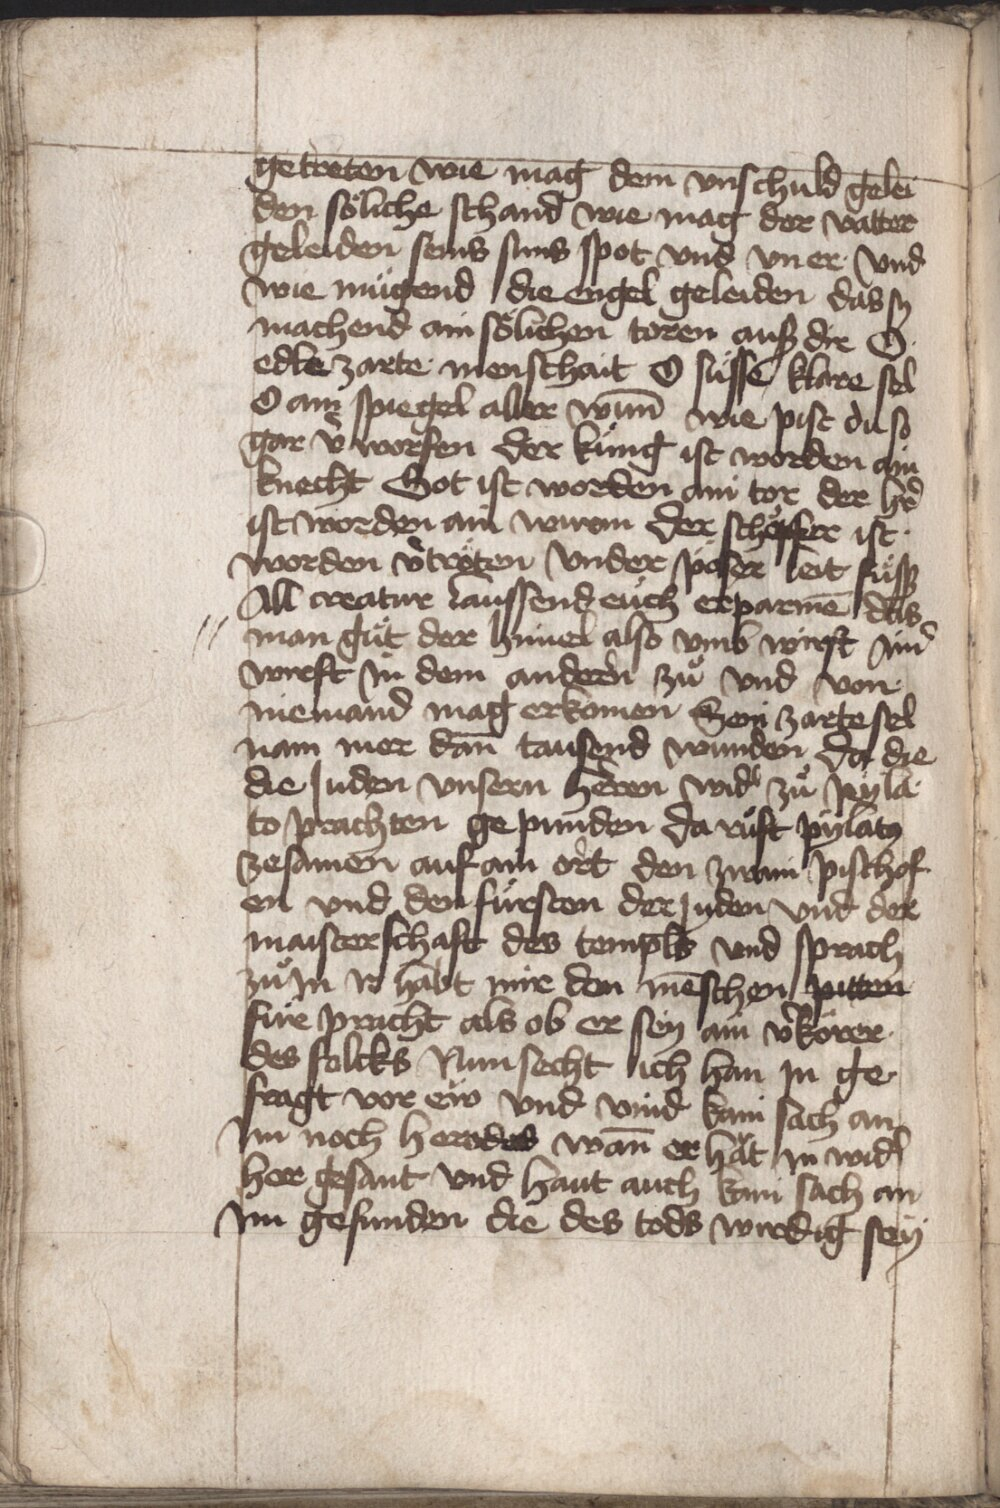 getreten wie mag dein vnschuld gelei
den söliche schand wie mag der vatter
geleiden seins suns spot vnd vner· vnd
wie mügend die engel geleiden das sy
machend ain sölichen toren auß dir O·
edle zarte menschait O süsse klare sel
O ain spiegel aller wun̄ wie pist du so
gar v̉worfen der küng ist worden ain
knecht Got ist worden ain tor der hr̄
ist worden ain wurm der schöpfer ist·
worden v̉treten vnder pöser leit füß
All creatur laussend eüch erparmē das
man güt der himel also vmb wirft ain̉
wirft in dem andern zů vnd von·
niemand mag erkomen Sein zarte sel
nam mer dan̄ tausend wunden Da die
die Juden vnsern herren wid̉ zů pyla·
to prachten gepunden Da rüft pylatꝯ
zesamen auf ain ort den zwain pischof
en vnd den fürsten der Juden vnd der
maisterschaft des tempels vnd sprach
zů in Ir habt mir den mēschen pitten
für pracht als ob er sey ain v̉körer·
des folcks Nun secht ich han in ge·
fragt vor eüw vnd vind kain sach an
Im noch herodes wan̄ er hāt in wid̉
her gesant vnd haut auch kain sach an
Im gefunden die des tods wirdig sey